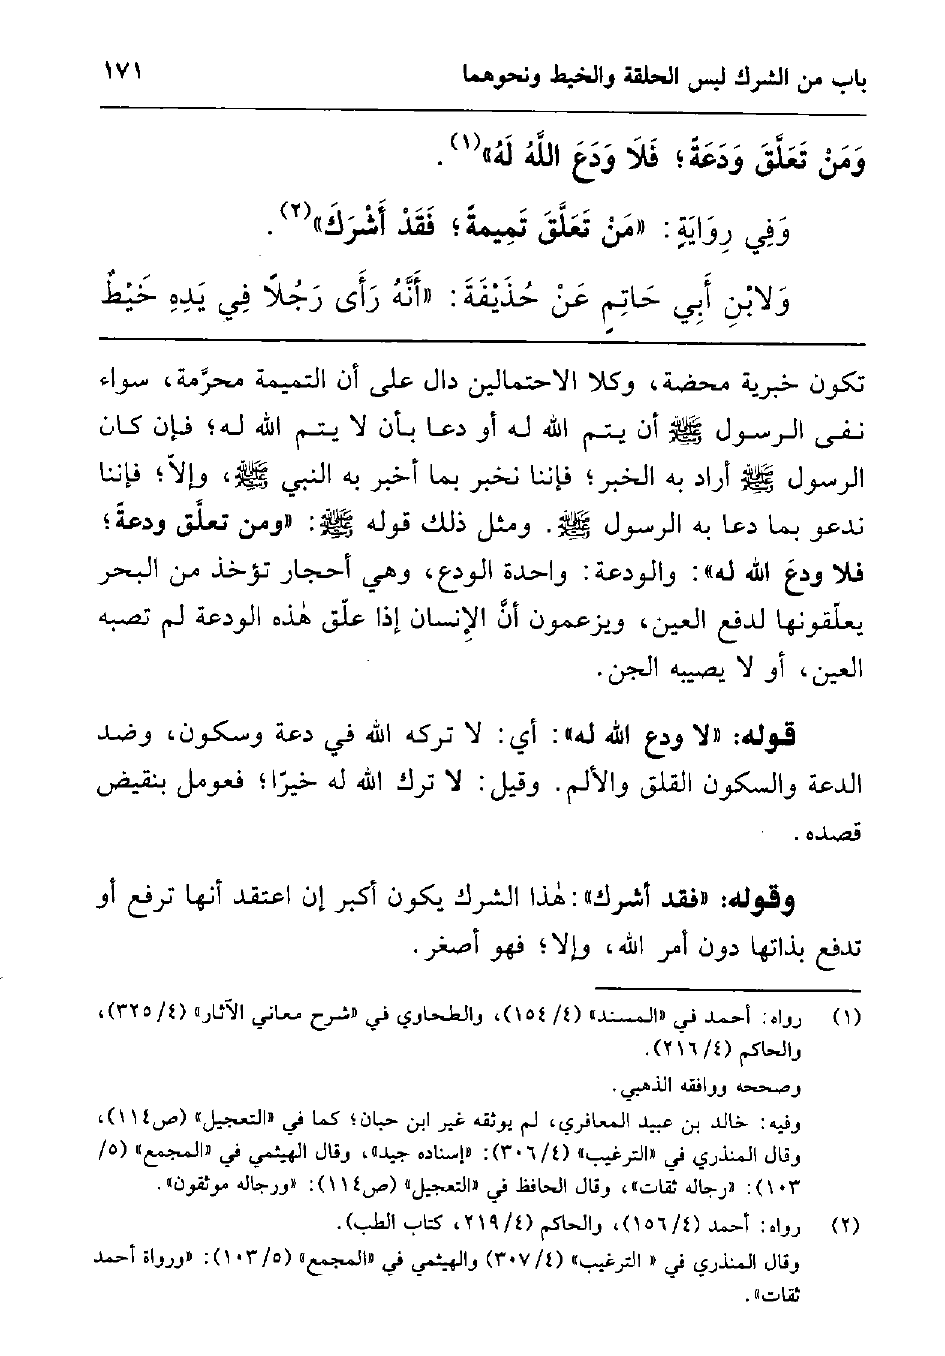 باب من الشرك لبس الحلقة والخيط ونحوهما ١٧١
وَمَنْ تَعَلَّقَ وَدَعَةً؛ فَلَا وَدَعَ اللَّهُ لَهُ»(١).
وَفِي رِوَايَةٍ: «مَنْ تَعَلَّقَ تَمِيمَةً؛ فَقَدْ أَشْرَكَ»(٢).
وَلِابْنِ أَبِي حَاتِمٍ عَنْ حُذَيْفَةَ: «أَنَّهُ رَأَى رَجُلًا فِي يَدِهِ خَيْطٌ
تكون خبرية محضة، وكلا الاحتمالين دال على أن التميمة محرَّمة، سواء
نفى الرسول ﷺ أن يتم الله له أو دعا بأن لا يتم الله له؛ فإن كان
الرسول ﷺ أراد به الخبر؛ فإننا نخبر بما أخبر به النبي ﷺ، وإلاَّ؛ فإننا
ندعو بما دعا به الرسول ﷺ. ومثل ذلك قوله ﷺ: «ومن تعلَّق ودعةً؛
فلا ودعَ الله له»: والودعة: واحدة الودع، وهي أحجار تؤخذ من البحر
يعلّقونها لدفع العين، ويزعمون أنَّ الإنسان إذا علّق هٰذه الودعة لم تصبه
العين، أو لا يصيبه الجن.
قوله: «لا ودع الله له»: أي: لا تركه الله في دعة وسكون، وضد
الدعة والسكون القلق والألم. وقيل: لا ترك الله له خيرًا؛ فعومل بنقيض
قصده.
وقوله: «فقد أشرك»: هٰذا الشرك يكون أكبر إن اعتقد أنها ترفع أو
تدفع بذاتها دون أمر الله، وإلا؛ فهو أصغر.
(١) رواه: أحمد في «المسند» (٤/ ١٥٤)، والطحاوي في «شرح معاني الآثار» (٤/ ٣٢٥)،
والحاكم (٤/ ٢١٦).
وصححه ووافقه الذهبي.
وفيه: خالد بن عبيد المعافري، لم يوثقه غير ابن حبان؛ كما في «التعجيل» (ص١١٤)،
وقال المنذري في «الترغيب» (٤/ ٣٠٦): «إسناده جيد»، وقال الهيثمي في «المجمع» (٥/
١٠٣): «رجاله ثقات»، وقال الحافظ في «التعجيل» (ص١١٤): «ورجاله موثقون».
(٢) رواه: أحمد (٤/ ١٥٦)، والحاكم (٤/ ٢١٩، كتاب الطب).
وقال المنذري في « الترغيب» (٤/ ٣٠٧) والهيثمي في «المجمع» (٥/ ١٠٣): «ورواة أحمد
ثقات».